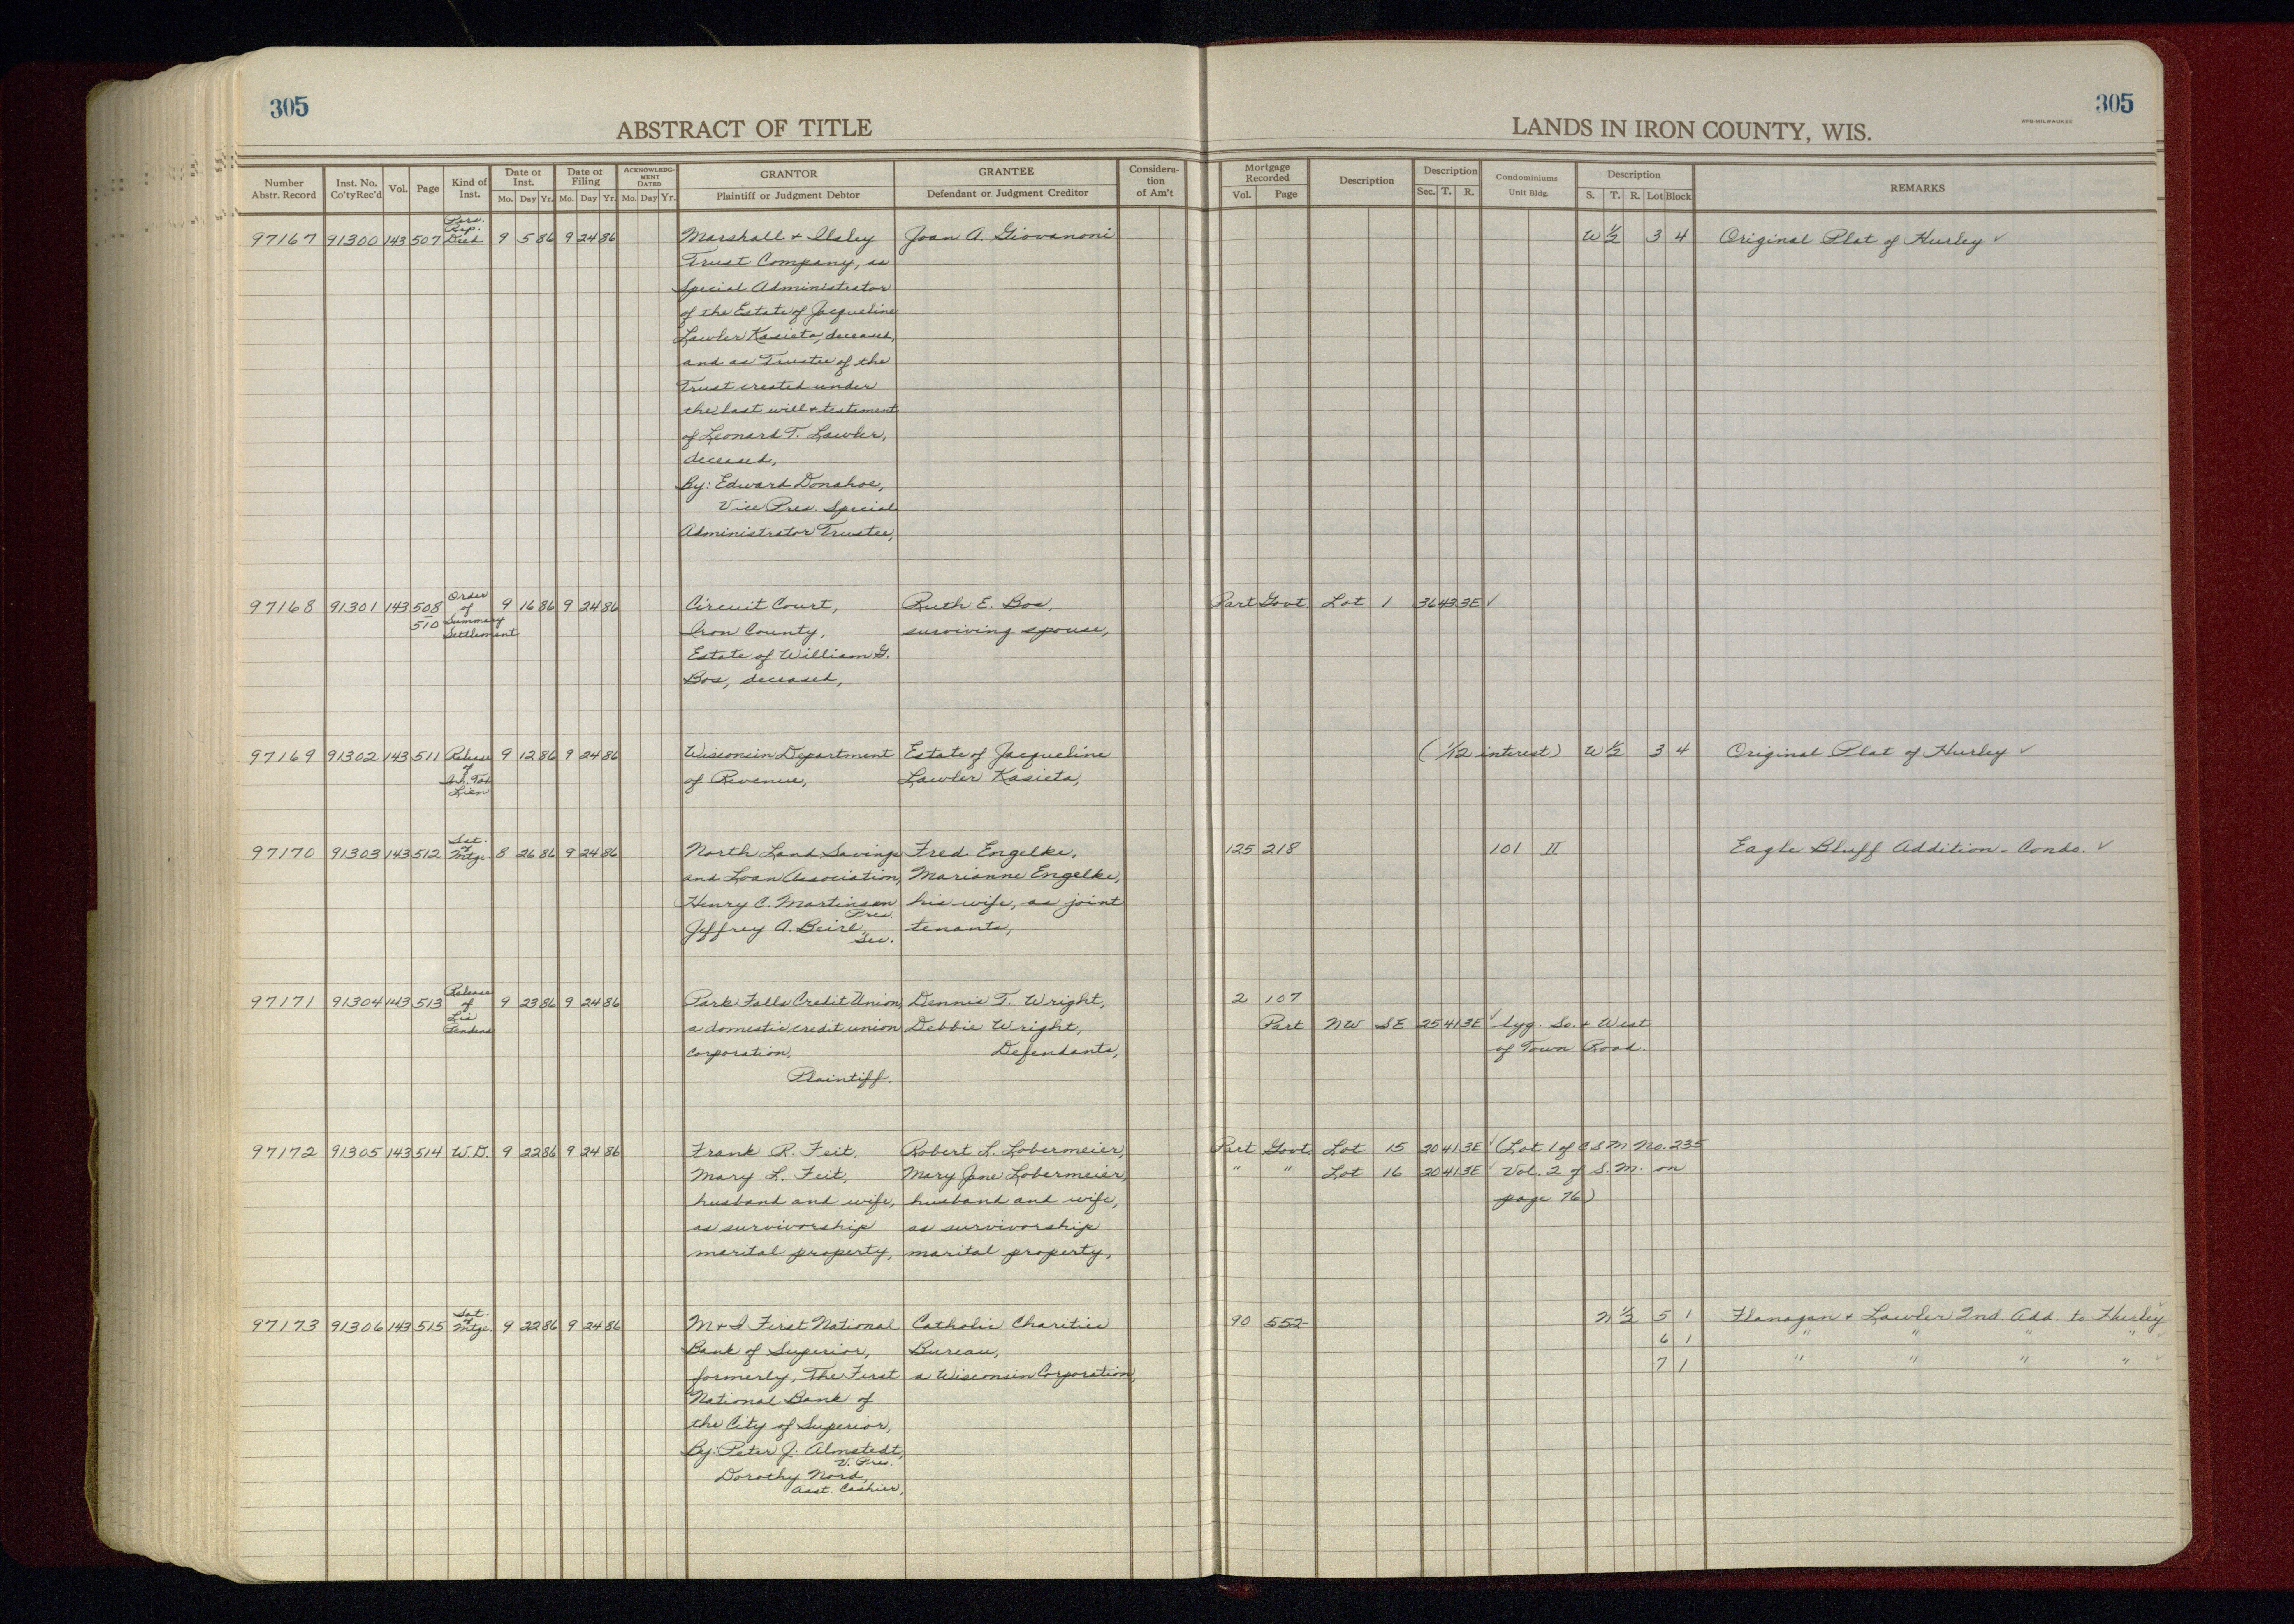 305
ABSTRACT OF TITLE
Number Abstr. Record
Inst. No. Co'ty Rec'd
Vol.
Page
Kind of Inst.
Date of Inst. Mo. Day Yr.
Date of Filing Mo. Day Yr.
ACKNOWLEDGMENT DATED Mo. Day Yr.
GRANTOR Plaintiff or Judgment Debtor
GRANTEE Defendant or Judgment Creditor
Consideration of Am't
305
LANDS IN IRON COUNTY, WIS.
WPB-MILWAUKEE
Mortgage Recorded Vol. Page
Description
Description Sec. T. R.
Condominiums Unit Bldg.
Description S. T. R. Lot Block
REMARKS
97167 91300 143 507 Pers. Rep. Deed 9 5 86 9 24 86 Marshall & Ilsley Joan A. Giovanoni W 1/2 3 4 Original Plat of Hurley ✓
Trust Company, as
Special Administrator
of the Estate of Jacqueline
Lawler Kasieta, deceased,
and as Trustee of the
Trust created under
the last will & testament
of Leonard T. Lawler,
deceased,
By: Edward Donahoe,
Vice Pres. Special
Administrator Trustee,
97168 91301 143 508 - 510 Order of Summary Settlement 9 16 86 9 24 86 Circuit Court, Ruth E. Bos, Part Govt. Lot 1 36 43 3E ✓
Iron County, surviving spouse,
Estate of William G.
Bos, deceased,
97169 91302 143 511 Release of Inh. Tax Lien 9 12 86 9 24 86 Wisconsin Department Estate of Jacqueline (1/12 interest) W 1/2 3 4 Original Plat of Hurley ✓
of Revenue, Lawler Kasieta,
97170 91303 143 512 Sat. of Mtge. 8 26 86 9 24 86 North Land Savings Fred Engelke, 125 218 101 II Eagle Bluff Addition - Condo. ✓
and Loan Association, Marianne Engelke,
Henry C. Martinsen Pres. his wife, as joint
Jeffrey A. Beirl, Sec. tenants,
97171 91304 143 513 Release of Lis Pendens 9 23 86 9 24 86 Park Falls Credit Union, Dennis T. Wright, 2 107
a domestic credit union Debbie Wright, Part NW SE 25 41 3E ✓ lyg. So. & West
corporation, Defendants, of Town Road.
Plaintiff.
97172 91305 143 514 W.D. 9 22 86 9 24 86 Frank R. Feit, Robert L. Lobermeier, Part Govt Lot 15 20 41 3E ✓ (Lot 1 of CSM No. 235
Mary L. Feit, Mary Jane Lobermeier, " " Lot 16 20 41 3E ✓ Vol. 2 of S.M. on
husband and wife, husband and wife, page 76)
as survivorship as survivorship
marital property, marital property,
97173 91306 143 515 Sat. of Mtge. 9 22 86 9 24 86 M & I First National Catholic Charities 90 552 N 1/2 5 1 Flanagan & Lawler 2nd. Add. to Hurley ✓
Bank of Superior, Bureau, 6 1 " " " " ✓
formerly, The First a Wisconsin Corporation, 7 1 " " " " ✓
National Bank of
the City of Superior,
By: Peter J. Almstedt, V. Pres.
Dorothy Nord, Asst. Cashier,